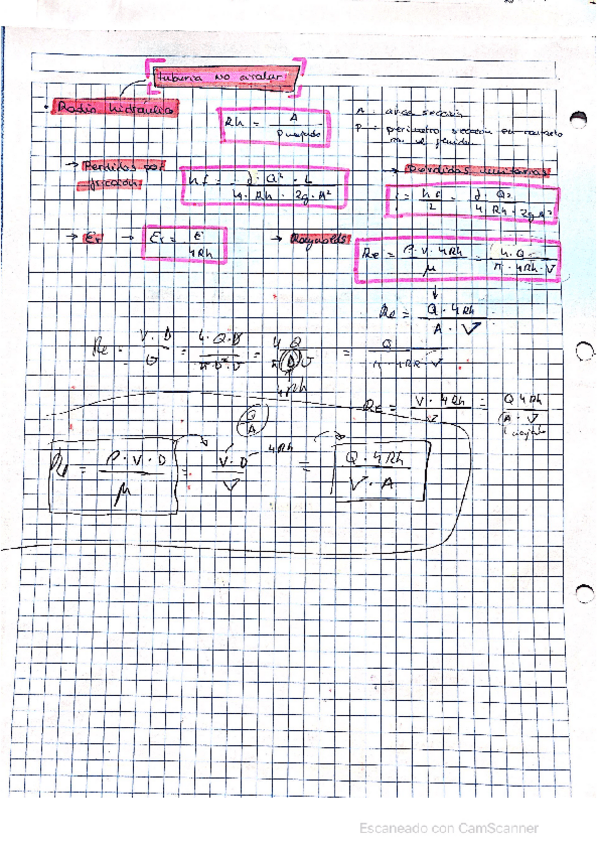 tubería no circular
• Radio hidráulico
Rh = A / P mojado
A = area sección
P = perímetro sección en contacto
con el fluido
→ Perdidas por
fricción
hf = f · Q² · L / 4 · Rh · 2g · A²
→ Pérdidas unitarias
= hf / L = f · Q² / 4 Rh · 2g A²
→ Er → Er = ε / 4Rh
→ Reynolds
Re = ρ · V · 4Rh / μ = 4 · Q / π · 4Rh · V
↓
Re = Q · 4Rh / A · V
Re = V · D / υ = 4 · Q · D / π · D² · υ = 4 Q / π D υ = Q / π · 4Rh · V
4Rh
Re = V · 4Rh / υ = Q 4Rh / A · V
Q / A
4Rh
Re = ρ · V · D / μ = V · D / V = Q · 4Rh / V · A
Escaneado con CamScanner